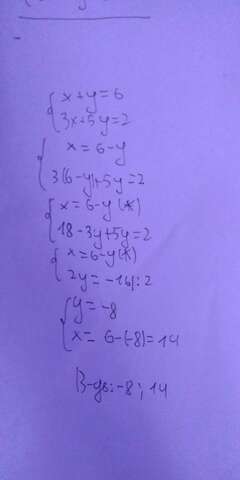 x+y=6
3x+5y=2
x=6-y
3(6-y)+5y=2
x=6-y(*)
18-3y+5y=2
x=6-y(*)
2y=-16|:2
y=-8
x= 6-(-8)=14
-8; 14